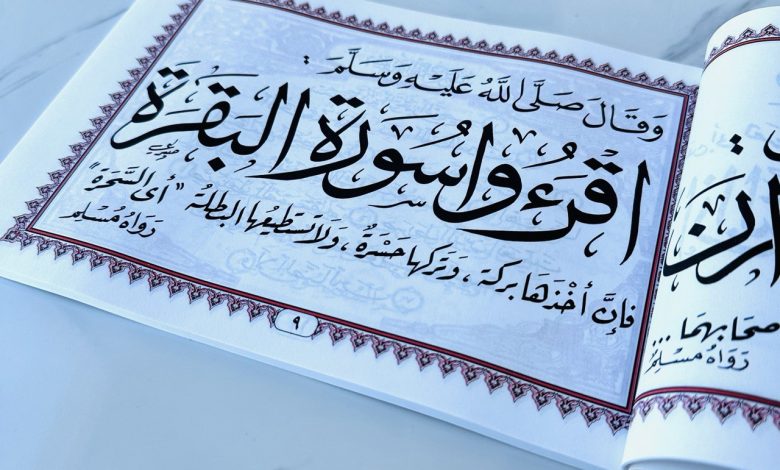 وَقَالَ صَلَّى اللَّهُ عَلَيْهِ وَسَلَّمَ:
اقْرَءُوا سُورَةَ البَقَرَةِ
فَإِنَّ أَخْذَهَا بَرَكَة، وَتَرْكَهَا حَسْرَةٌ، وَلَا تَسْتَطِيعُهَا البَطَلَةُ "أى السَّحَرَةُ"
رَوَاهُ مُسْلِم
٩
صَحَابِهِمَا ...
رَوَاهُ مُسْلِم